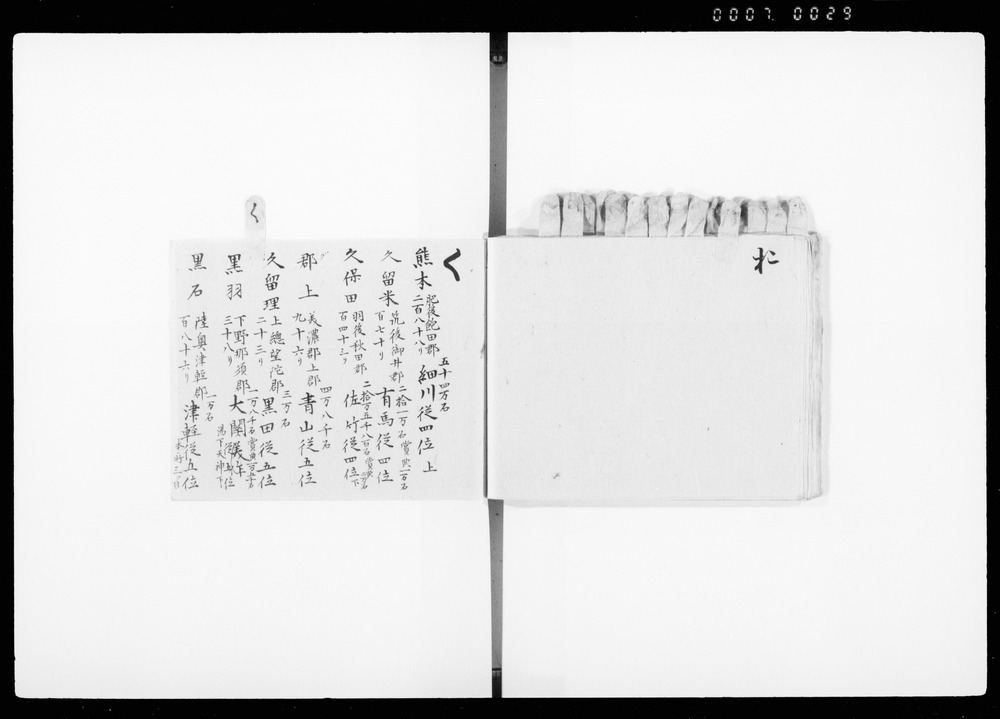 0007 0029
お
く
く
熊本 肥後飽田郡 二百八十八り 五十四万石 細川従四位上
久留米 筑後御井郡 百七十り 二拾一万石 賞典一万石 有馬従四位
久保田 羽後秋田郡 百四十三り 二拾万五千八百石 賞典二万石 佐竹従四位下
郡上 美濃郡上郡 九十六り 四万八千石 青山従五位
久留理 上總望陀郡 二十三り 三万石 黒田従五位
黒羽 下野那須郡 三十八り 一万八千石 大関 従五位 湯下天神下
黒石 陸奥津輕郡 百八十六り 一万石 津輕従五位